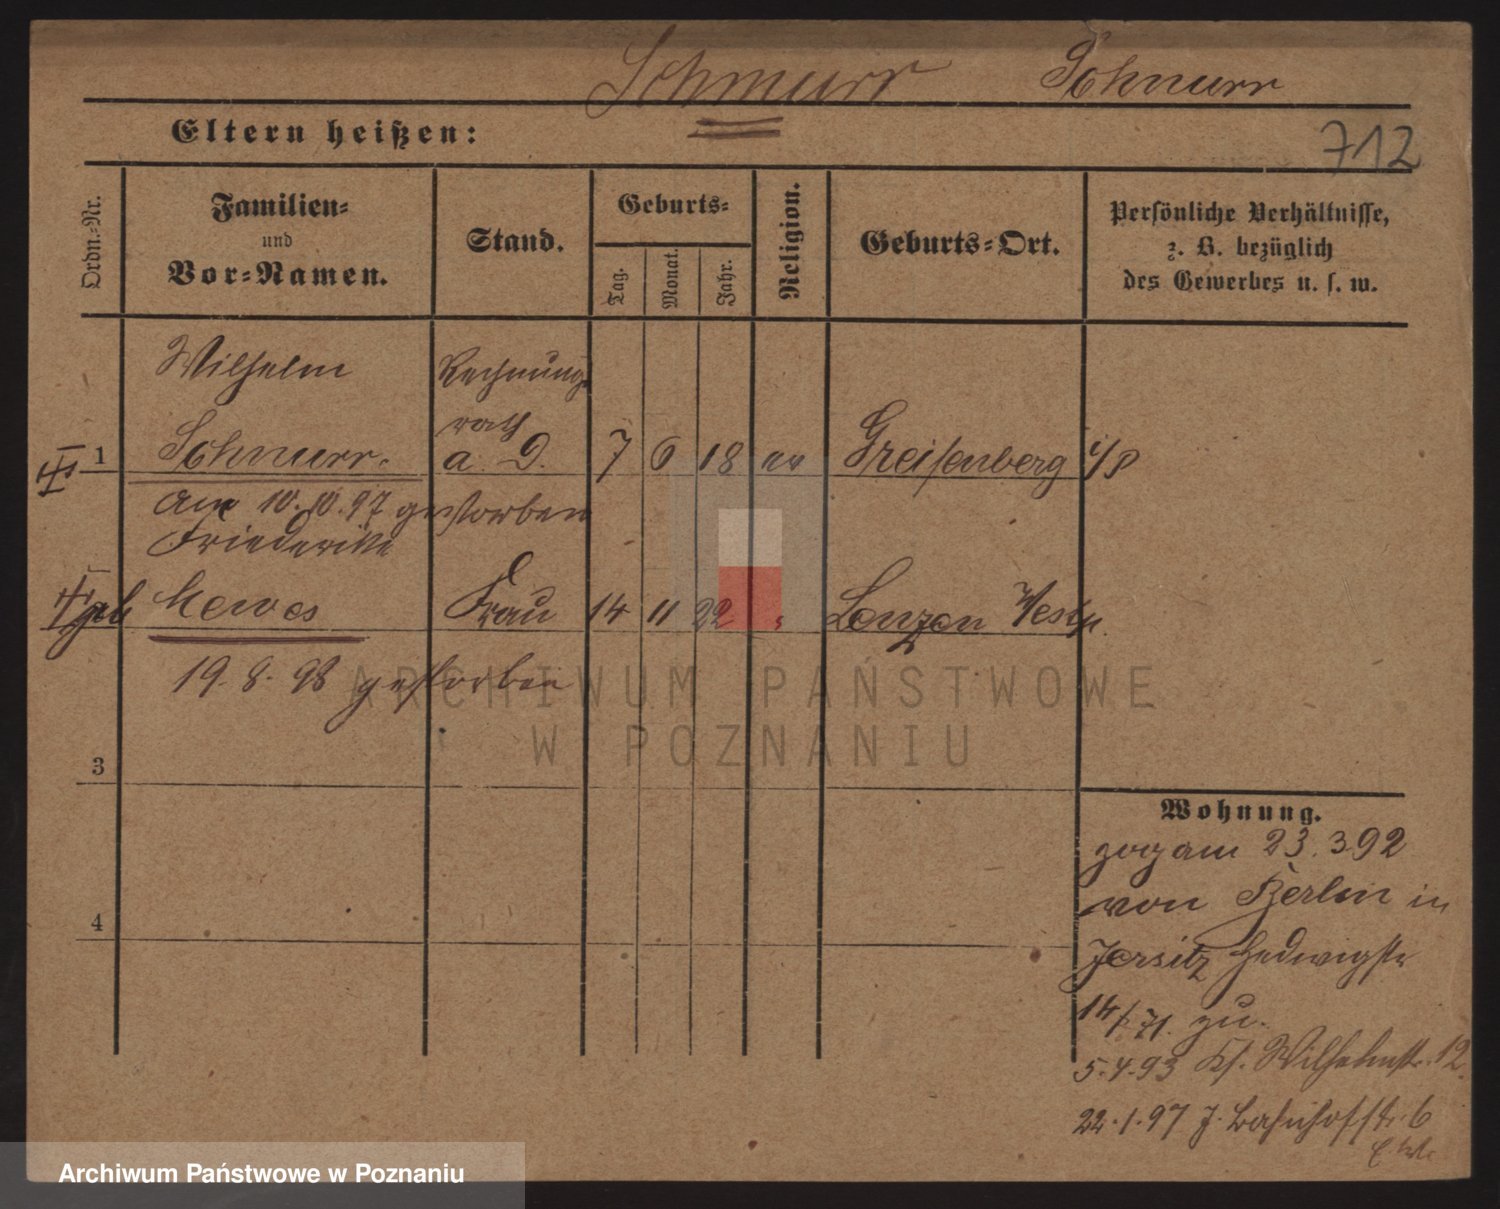 Schnurr Schnurr
Eltern heißen:
712
Ordn.-Nr.
Familien-
und
Vor-Namen.
Stand.
Geburts-
Tag.
Monat.
Jahr.
Religion.
Geburts-Ort.
Persönliche Verhältnisse,
z. B. bezüglich
des Gewerbes u. s. w.
Wilhelm Rechnungs
rath
1 Schnurr. a. D. 7 6 18 ev Greifenberg i/P
am 10.10.97 gestorben
Friederike
geb Mewes Frau 14 11 22 Lenzen Westp.
19.8.98 gestorben
ARCHIWUM PAŃSTWOWE
W POZNANIU
3
4
Wohnung.
zog am 23.3.92
von Berlin in
Jersitz Hedwigstr
14/71. zu.
5.4.93 Kl. Wilhelmstr. 12.
22.1.97 J. Bahnhofstr. 6
Archiwum Państwowe w Poznaniu